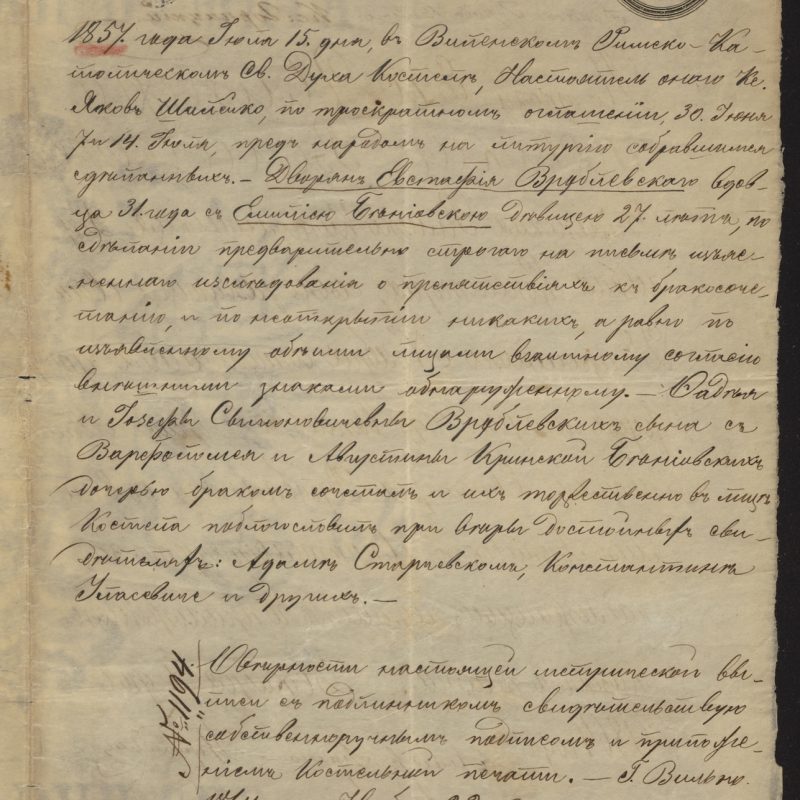 1857. года Іюля 15. дня, въ Виленскомъ Римско-Ка-
толическомъ Св. Духа Костелѣ, Настоятель онаго Кс.
Яковъ по троекратномъ оглашеніи, 30. Іюня
7 и 14. Іюля, предъ народомъ на литургію собравшимся
сдѣланныхъ. — Дворянъ Евстафія Врублевскаго вдов-
ца 31. года съ Емиліею Беніовскою дѣвицею 27. лѣтъ, по
сдѣланіи предварительно строгаго на письмѣ изъяс-
неннаго изслѣдованія о препятствіяхъ къ бракосоче-
танію, и по неоткрытіи никакихъ, а равно по
изъявленному обѣими лицами взаимному согласію
внѣшними знаками обнаруженному. — Фадѣя
и Іозефы Симоновичевны Врублевскихъ сына съ
Варфоломея и Августины Кринской Беніовскихъ
дочерью бракомъ сочеталъ и ихъ торжественно въ лицѣ
Костела поблагословилъ при вѣры достойныхъ сви-
дѣтеляхъ: Адамѣ Старчевскомъ, Константинѣ
и другихъ. —
О вѣрности настоящей метрической вы-
писи съ подлинникомъ свидѣтельствую
собственноручнымъ подписомъ и приложе-
ніемъ Костельной печати. — Г. Вильно.
№ 1194.